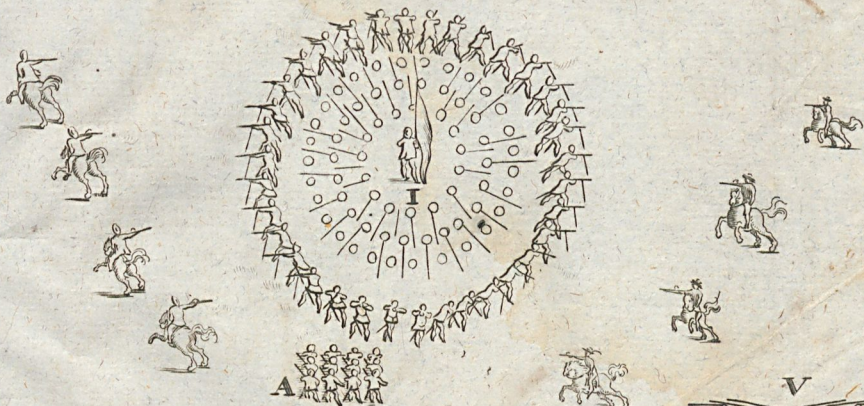 I
A
V